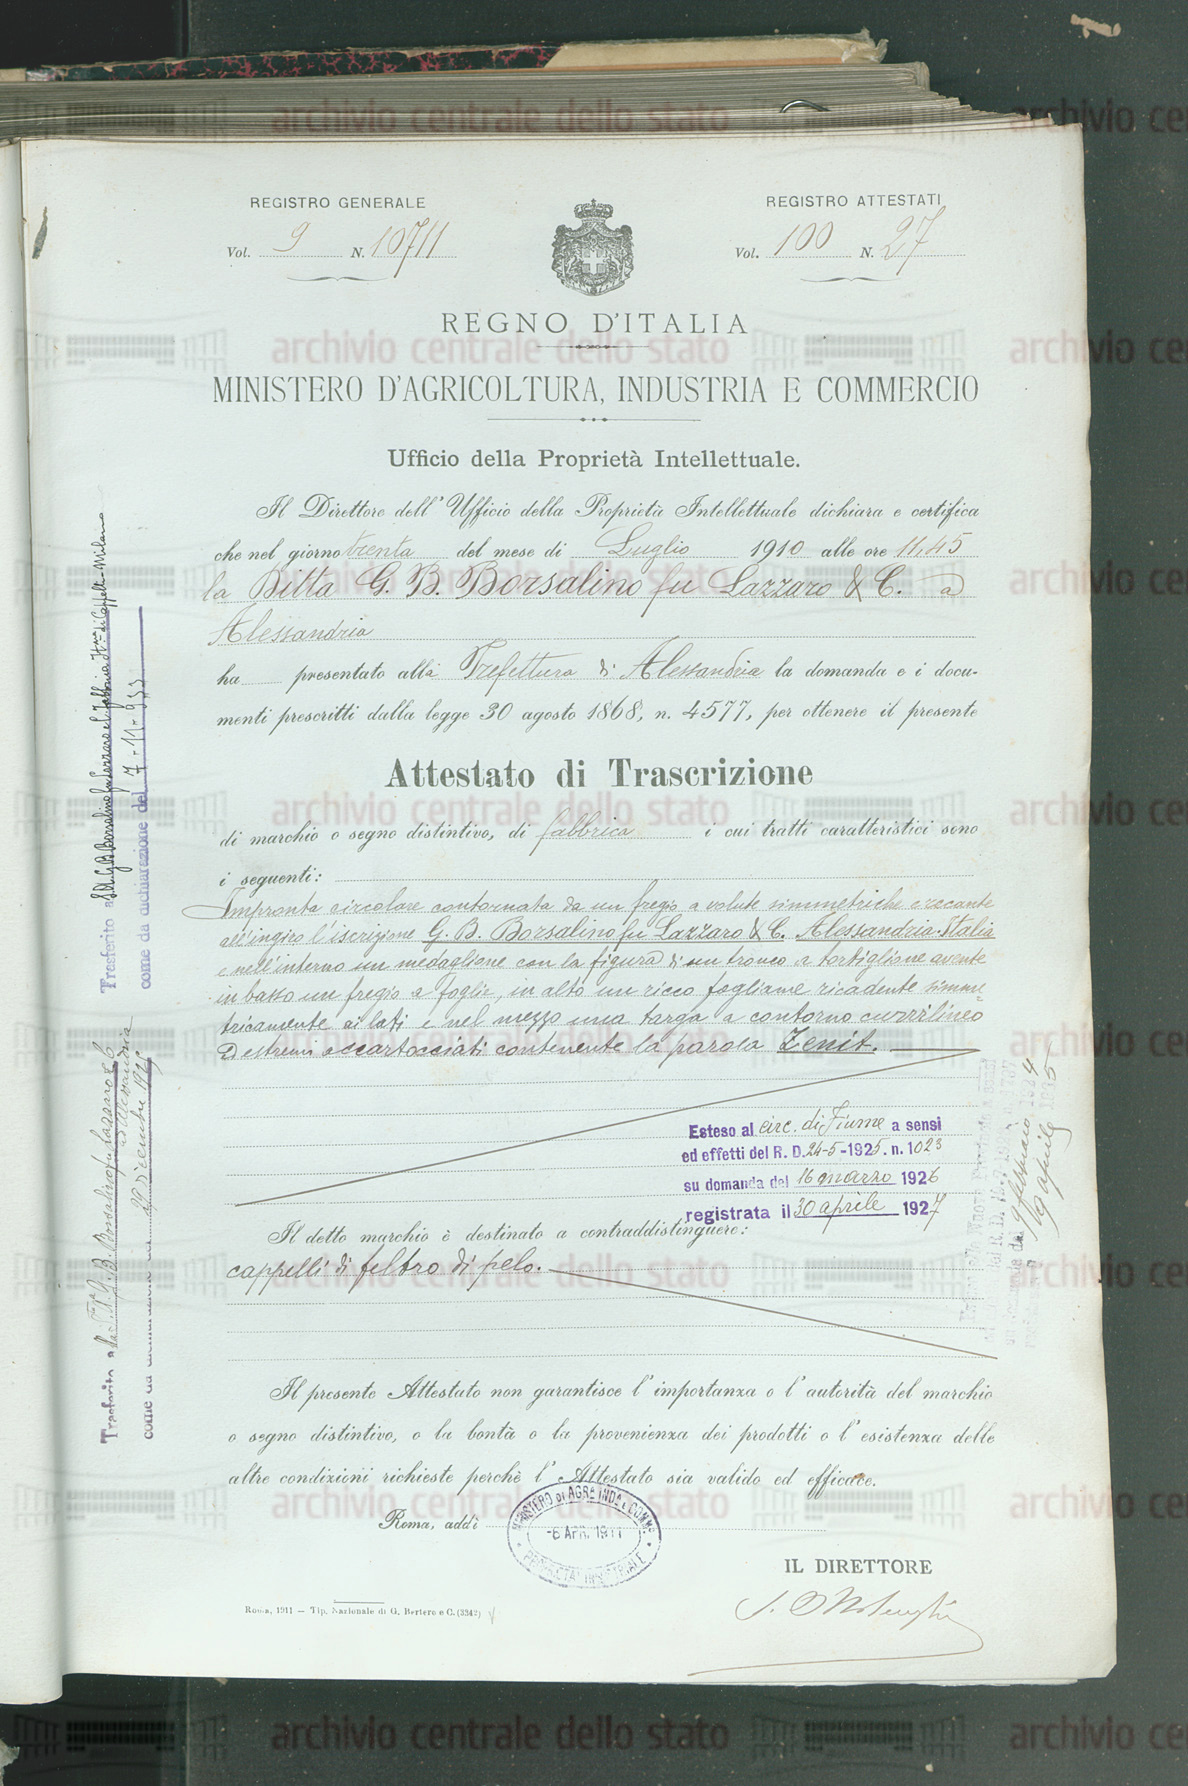 REGISTRO GENERALE
Vol. 9 N. 10711
REGISTRO ATTESTATI
Vol. 100 N. 27
REGNO D'ITALIA
MINISTERO D'AGRICOLTURA, INDUSTRIA E COMMERCIO
Ufficio della Proprietà Intellettuale.
Il Direttore dell'Ufficio della Proprietà Intellettuale dichiara e certifica
che nel giorno trenta del mese di Luglio 1910 alle ore 11,45
la Ditta G. B. Borsalino fu Lazzaro & C. a
Alessandria
ha presentato alla Prefettura di Alessandria la domanda e i docu-
menti prescritti dalla legge 30 agosto 1868, n. 4577, per ottenere il presente
Attestato di Trascrizione
di marchio o segno distintivo, di fabbrica i cui tratti caratteristici sono
i seguenti:
Impronta circolare contornata da un fregio a volute simmetriche e recante
all'ingiro l'iscrizione G. B. Borsalino fu Lazzaro & C. Alessandria-Italia
e nell'interno un medaglione con la figura di un tronco a tortiglione avente
in basso un fregio a foglie, in alto un ricco fogliame ricadente simme=
tricamente ai lati e nel mezzo una targa a contorno curvilineo
ed estremi accartocciati contenente la parola Zenit.
Esteso al circ. di Fiume a sensi
ed effetti del R. D. 24-5-1925. n. 1023
su domanda del 16 marzo 1926
registrata il 30 aprile 1927
Il detto marchio è destinato a contraddistinguere:
cappelli di feltro di pelo.
Il presente Attestato non garantisce l'importanza o l'autorità del marchio
o segno distintivo, o la bontà o la provenienza dei prodotti o l'esistenza delle
altre condizioni richieste perchè l'Attestato sia valido ed efficace.
Roma, addì
MINISTERO DI AGR. E IND. E COMM.
-6 APR. 1911
PROPRIETA' INDUSTRIALE
IL DIRETTORE
Roma, 1911 — Tip. Nazionale di G. Bertero e C. (3342)
Trasferito a S.A. G.B. Borsalino fu Lazzaro e C.
come da dichiarazione del 7-11-933
Trasferito a G. B. Borsalino fu Lazzaro & C
ad Alessandria
29 dicembre 192
9 febbraio 1924
19 aprile 1925
archivio centrale dello stato